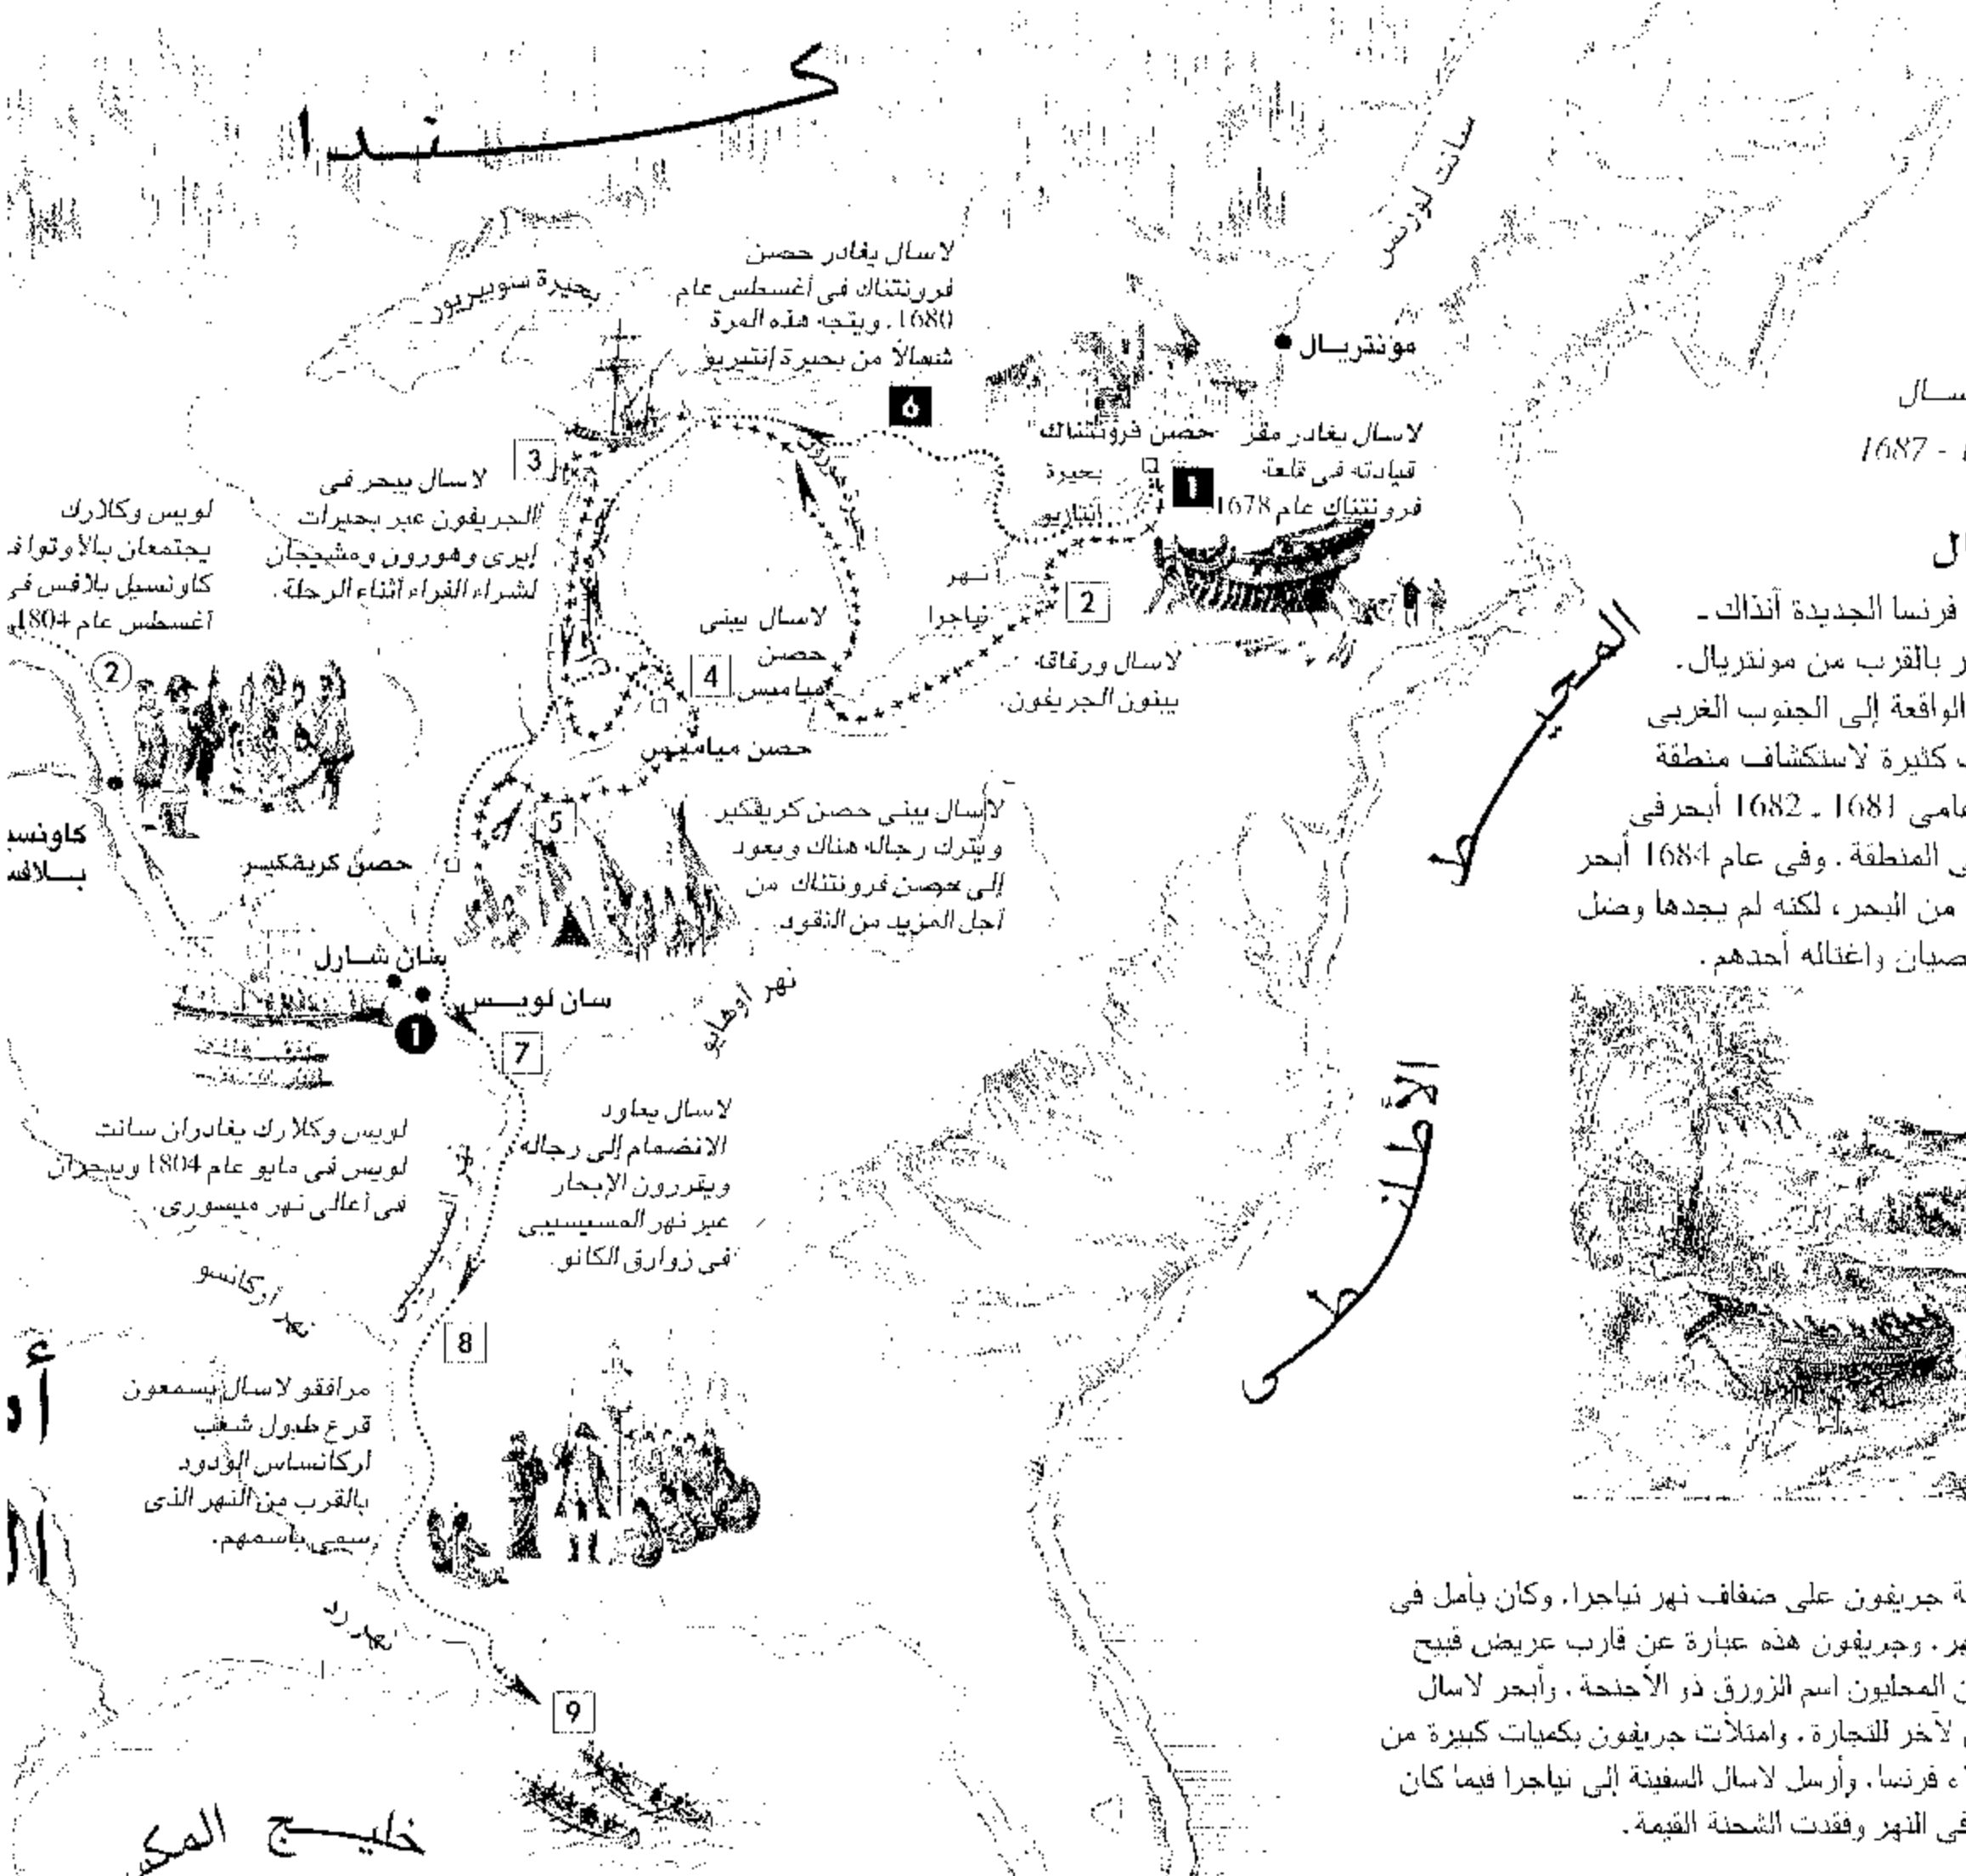 كـــنـدا
سانت لورنس
بحيرة سوبيريور
لاسال يغادر حصن
فرونتناك فى أغسطس عام
1680. ويتجه هذه المرة
شمالاً من بحيرة إنتيريو
6
مونتريـال
حصن فرونتناك
بحيرة
أنتاريو
1
لاسال يغادر مقر
قيادته فى قلعة
فرونتناك عام 1678
بحيرة هورون
3
لاسال يبحر فى
الجريفون عبر بحيرات
إيرى وهورون ومشيجان
لشراء الفراء أثناء الرحلة.
لويس وكلارك
يجتمعان بالأوتوا فى
كاونسيل بلافس فى
أغسطس عام 1804.
2
نهر
نياجرا
2
لاسال ورفاقه
يبنون الجريفون.
لاسال يبنى
حصن
مياميس
4
حصن مياميس
5
لاسال يبنى حصن كريفكير
ويترك رجاله هناك ويعود
إلى حصن فرونتناك من
أجل المزيد من النقود.
كاونسيـ
بـلافسـ
حصن كريفكيـر
سان شـارل
سان لويـس
1
7
نهر أوهايو
لويس وكلارك يغادران سانت
لويس فى مايو عام 1804 ويبحران
فى أعالى نهر ميسورى.
لاسال يعاود
الانضمام إلى رجاله
ويقررون الإبحار
عبر نهر المسيسيبى
فى زوارق الكانو.
نهر المسيسيبى
نهر أوكانسو
8
مرافقو لاسال يسمعون
قرع طبول شعب
أركانساس الودود
بالقرب من النهر الذى
سمى باسمهم.
نهر رد
9
خليـج المكـ
المحيـط
الأطلنطى
ـسـال
1687 -
ـال
فرنسا الجديدة آنذاك ـ
ر بالقرب من مونتريال.
الواقعة إلى الجنوب الغربى
ـ كثيرة لاستكشاف منطقة
ـامى 1681 ـ 1682 أبحر فى
ـى المنطقة. وفى عام 1684 أبحر
من البحر، لكنه لم يجدها وضل
ـصيان واغتاله أحدهم.
ـة جريفون على ضفاف نهر نياجرا. وكان يأمل فى
ـهر. وجريفون هذه عبارة عن قارب عريض قبيح
ـن المحليون اسم الزورق ذو الأجنحة. وأبحر لاسال
ـ لآخر للتجارة. وامتلأت جريفون بكميات كبيرة من
ـلاء فرنسا. وأرسل لاسال السفينة إلى نياجرا فيما كان
فى النهر وفقدت الشحنة القيمة.